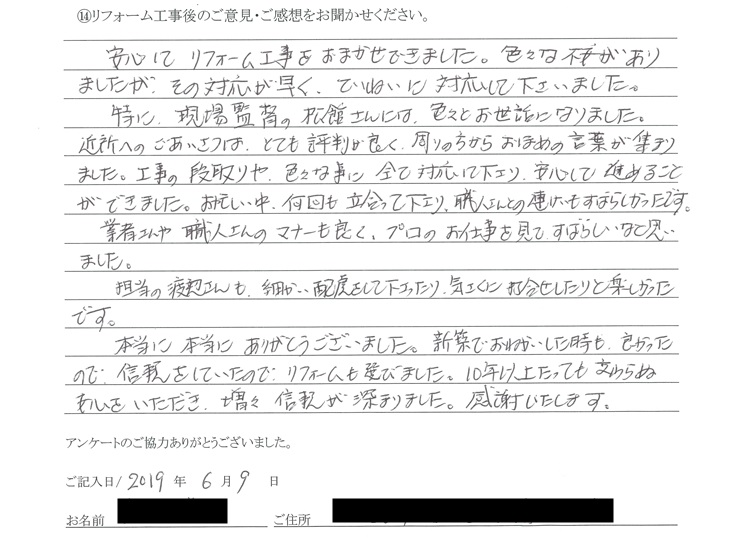 ⑭リフォーム工事後のご意見・ご感想をお聞かせください。
安心して リフォーム工事を おまかせできました。色々な 不安が あり
ましたが、その 対応が 早く、ていねいに 対応して 下さいました。
特に、現場監督の 松館さんには、色々と お世話に なりました。
近所への ごあいさつは、とても 評判が 良く、周りの方から おほめの 言葉が 集まり
ました。工事の 段取りや、色々な事に 全て 対応して下さり、安心して 進めること
ができました。お忙しい中、何回も 立会って下さり、職人さんとの 連けいも すばらしかったです。
業者さんや 職人さんの マナーも良く、プロの お仕事を見て、すばらしいなと 思い
ました。
担当の さんも、細かい 配慮をして下さったり、気さくに 打合せしたりと 楽しかった
です。
本当に 本当に ありがとうございました。新築で おねがいした時も、良かった
ので、信頼を していたので、リフォームも 選びました。10年以上たっても 変わらぬ
安心を いただき、増々 信頼が 深まりました。感謝いたします。
アンケートのご協力ありがとうございました。
ご記入日/ 2019 年 6 月 9 日
お名前 ご住所